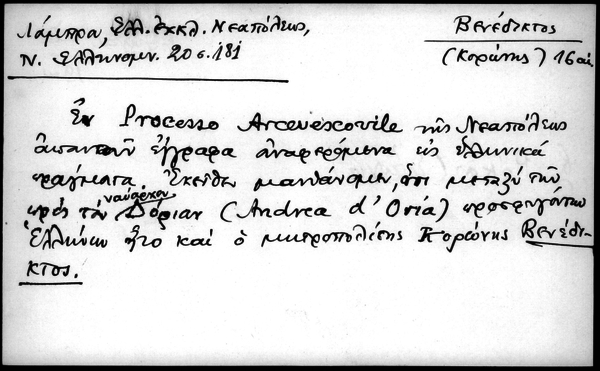 Λάμπρα, Ελλ. εκκλ. Νεαπόλεως,
Ν. Ελληνομν. 20 σ. 181
Βενέδικτος
(Κορώνης) 16 αι.
Εν Processo Arcevescovile της Νεαπόλεως
απαντών έγγραφα αναφερόμενα εις ελληνικά
πράγματα. Εκείθεν μανθάνομεν, ότι μεταξύ των
προς τον ναύαρχον Δόριαν (Andrea d'Oria) προσφυγόντων
Ελλήνων ήτο και ο μητροπολίτης Κορώνης Βενέδι-
κτος.